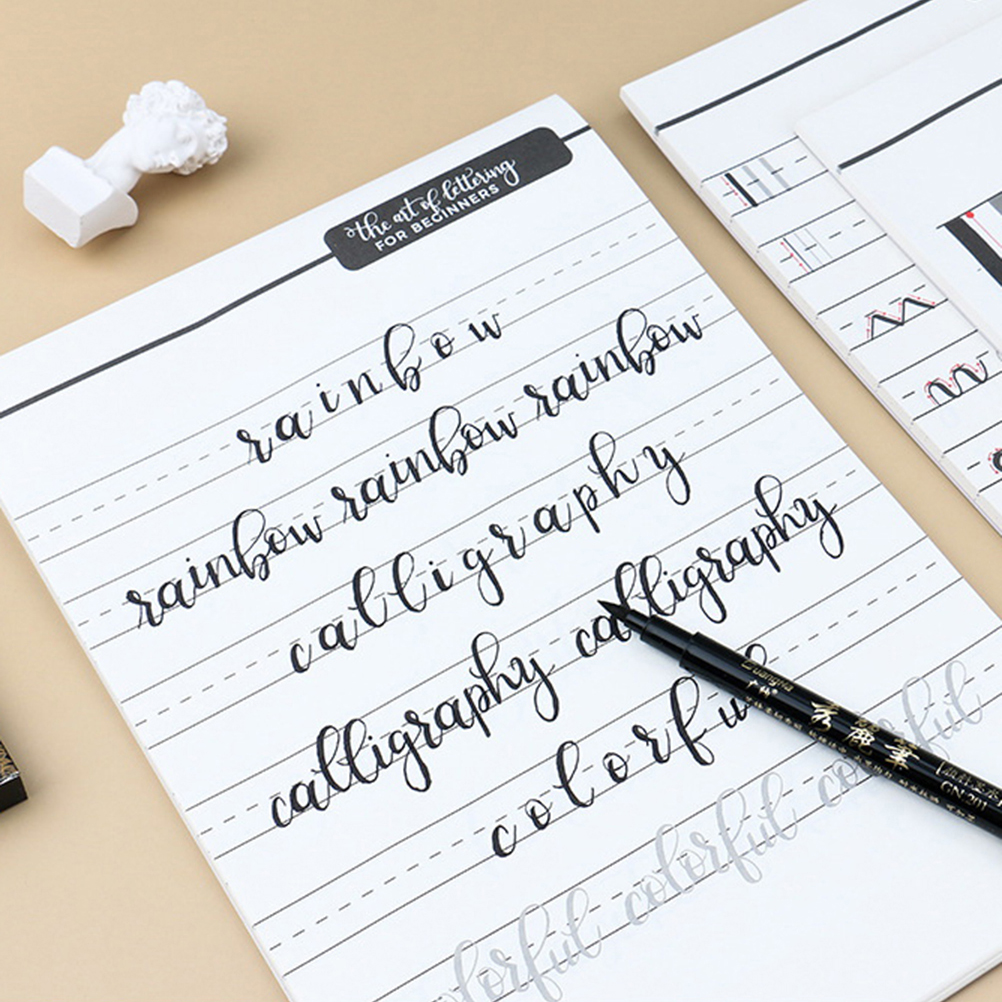 the art of lettering
FOR BEGINNERS
r a i n b o w
rainbow rainbow rainbow
c a l l i g r a p h y
calligraphy calligraphy
c o l o r f u
colorful colorful
GuangNa
GN-201